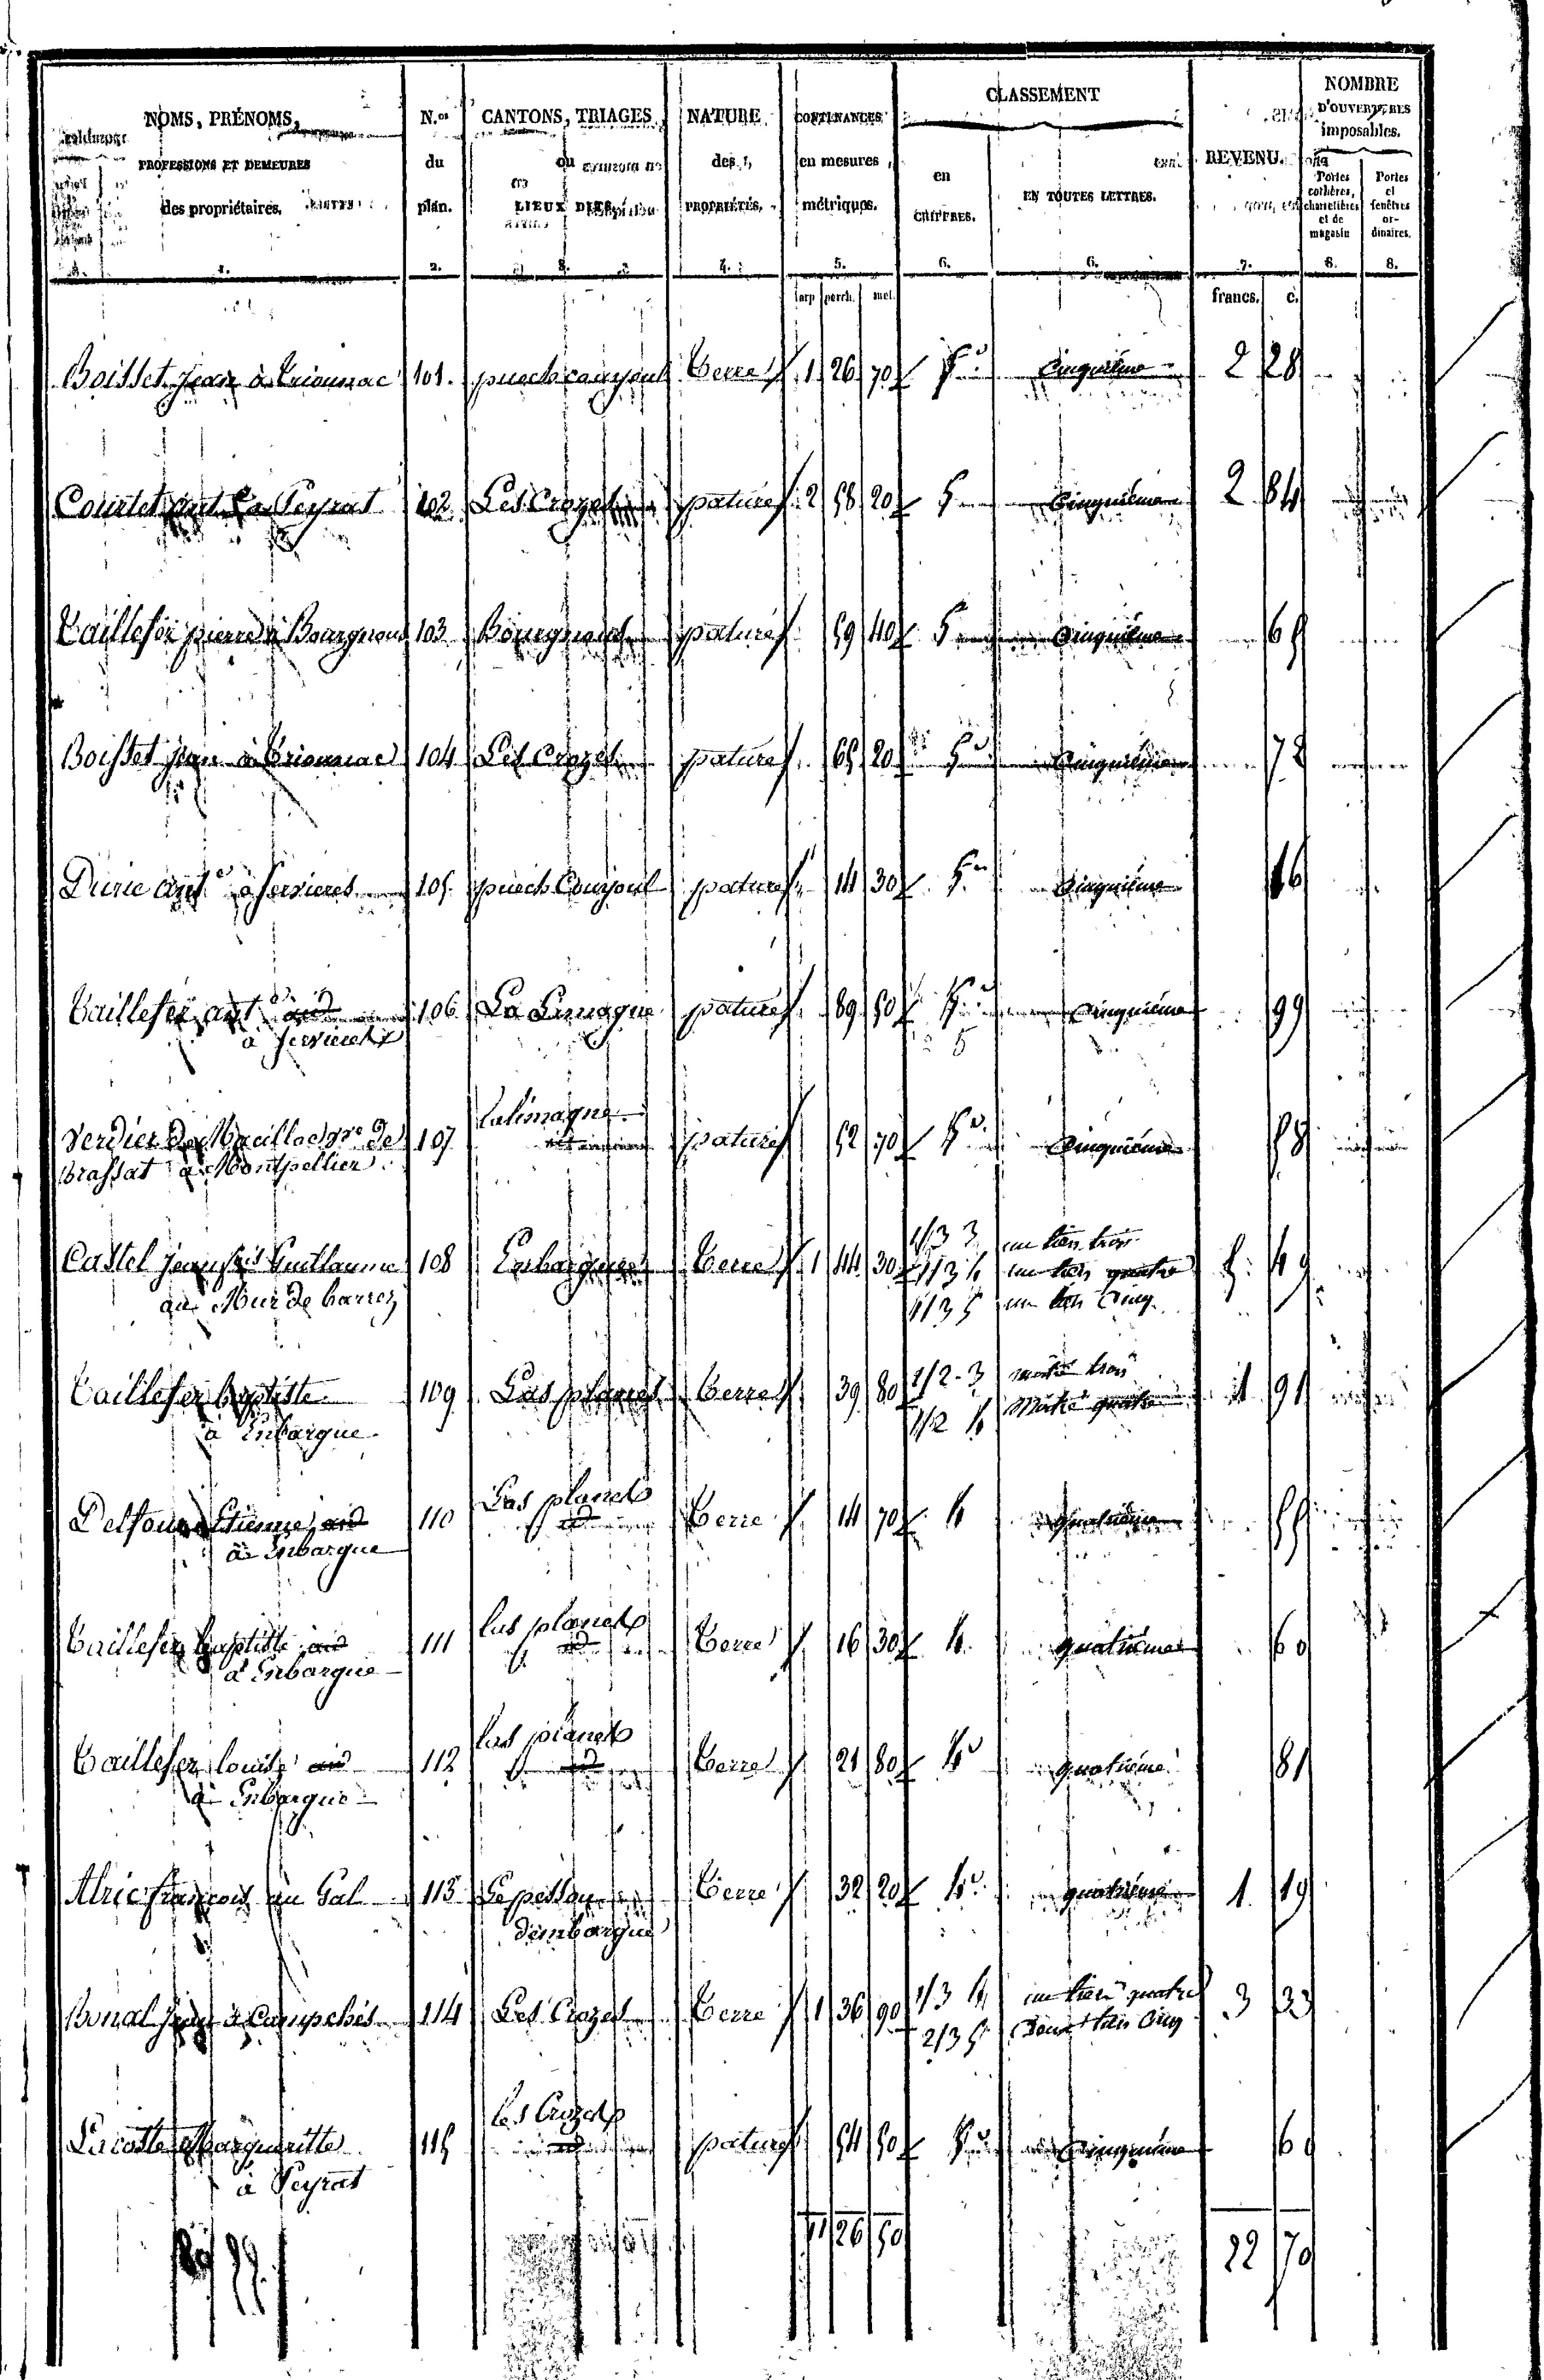 NOMS, PRÉNOMS, PROFESSIONS ET DEMEURES des propriétaires. | N.os du plan. | CANTONS, TRIAGES ou LIEUX DITS. | NATURE des PROPRIÉTÉS. | CONTENANCES en mesures métriques. | CLASSEMENT en CHIFFRES. | EN TOUTES LETTRES. | REVENU. | NOMBRE D'OUVERTURES imposables. Portes cochères, charretières et de magasin | Portes et fenêtres ordinaires.
1. 2. 3. 4. 5. 6. 6. 7. 8. 8.
arp perch. met. francs. c.
Boisset Jean à Brionnac 101. puech couyoul Terre 1 26 70 5e Cinquième 2 28
Courtet ant La Peyrat 102 Les Crozet pature 2 58 20 5 Cinquième 2 84
Taillefer pierre à Bourgnoux 103 pature 59 40 5 Cinquième 65
Boisset Jean à Brionnac 104 Les Crozet pature 65 20 5e Cinquième 72
à Servieres 105 puech Couyoul pature 14 30 5e Cinquième 16
Taillefer ant
à Servieres 106 La Limagne pature 89 50 5e Cinquième 99
5
Verdier de de
Brassat à Montpellier 107 La limagne pature 52 70 5e Cinquième 58
Castel Jean fils Guillaume 108 Enbarque Terre 1 44 30 1/3 3 un tiers trois 5 49
au Mur de barrez 1/3 4 un tiers quatre
1/3 5 un tiers Cinq
Taillefer baptiste 109 Las planes Terre 39 80 1/2 3 moitié trois 1 91
à Enbarque 1/2 4 Moitié quatre
Delfour Etienne 110 Las planes Terre 14 70 4 quatrième 55
à Enbarque
Taillefer baptiste 111 las planes Terre 16 30 4 quatrième 60
à Enbarque
Taillefer louise 112 las planes Terre 21 80 4e quatrième 81
à Enbarque
Alric françois au Gal 113 Terre 32 20 4e quatrième 1 19
d'enbarque
Bonal Jean à Campchés 114 Les Crozet Terre 1 36 90 1/3 4 un tiers quatre 3 23
2/3 5 Deux tiers Cinq
Lacoste Margueritte 115 les Crozets pature 54 50 5e Cinquième 60
à Peyrat
11 26 50 22 70